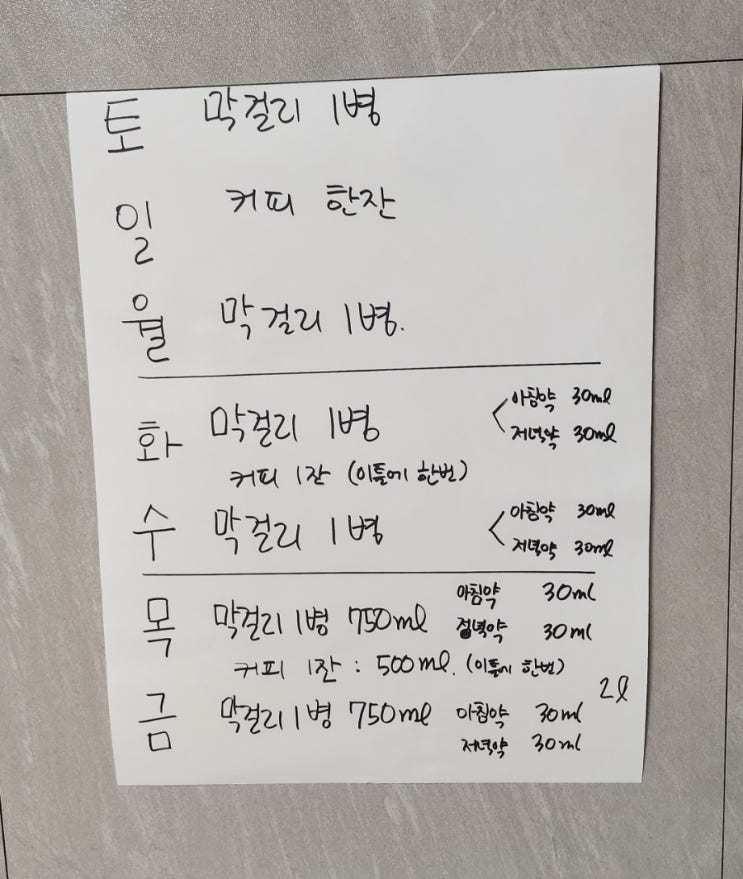 토 막걸리 1병
일 커피 한잔
월 막걸리 1병.
화 막걸리 1병 < 아침약 30ml
저녁약 30ml
커피 1잔 (이틀에 한번)
수 막걸리 1병 < 아침약 30ml
저녁약 30ml
목 막걸리 1병 750ml 아침약 30ml
저녁약 30ml
커피 1잔 : 500ml. (이틀에 한번)
2l
금 막걸리 1병 750ml 아침약 30ml
저녁약 30ml